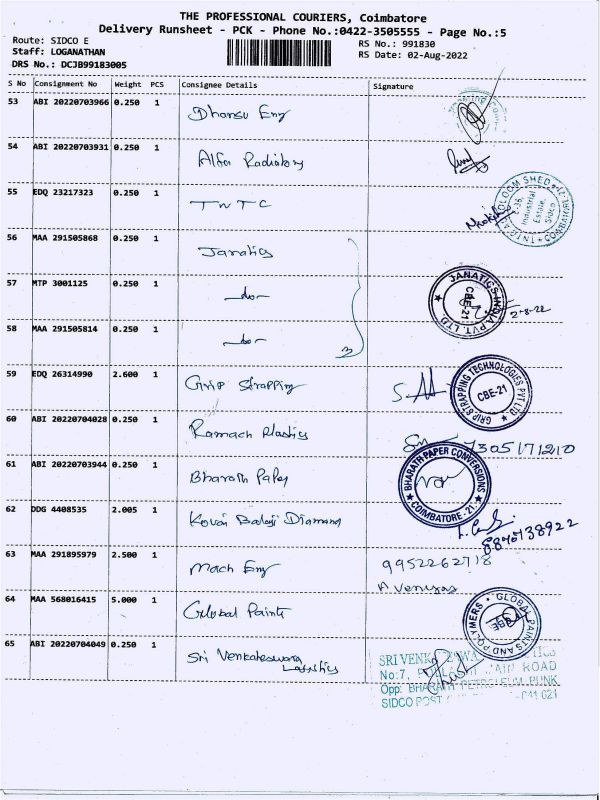 THE PROFESSIONAL COURIERS, Coimbatore
Delivery Runsheet - PCK - Phone No.:0422-3505555 - Page No.:5
Route: SIDCO E
Staff: LOGANATHAN
DRS No.: DCJB99183005
RS No.: 991830
RS Date: 02-Aug-2022
S No Consignment No Weight PCS Consignee Details Signature
53 ABI 20220703966 0.250 1 Dhansu Eng
54 ABI 20220703931 0.250 1 Alfa
55 EDQ 23217323 0.250 1 TNTC
LOOM SHED
Industrial
Estate,
Sidco
56 MAA 291505868 0.250 1 Janatics
57 MTP 3001125 0.250 1 -do-
JANATICS INDIA PVT. LTD.
CBE-21
2-8-22
58 MAA 291505814 0.250 1 -do-
3
59 EDQ 26314990 2.600 1 Grip Strapping
GRIP STRAPPING TECHNOLOGIES PVT LTD
CBE-21
60 ABI 20220704028 0.250 1 Ramach Plastics
7305171210
61 ABI 20220703944 0.250 1 Bharath Paper
BHARATH PAPER CONVERSIONS
COIMBATORE - 21
62 DDG 4408535 2.005 1 Kovai Balaji Diamond
8870738922
63 MAA 291895979 2.500 1 Mach Eng
9952262718
64 MAA 568016415 5.000 1 Global Paints
GLOBAL PAINTS AND POLYMERS
CBE
65 ABI 20220704049 0.250 1 Sri Venkateswara
Logistics
SRI VENK
No:7, ROAD
Opp: BHARATH PETROLEUM BUNK
SIDCO POST 641 021